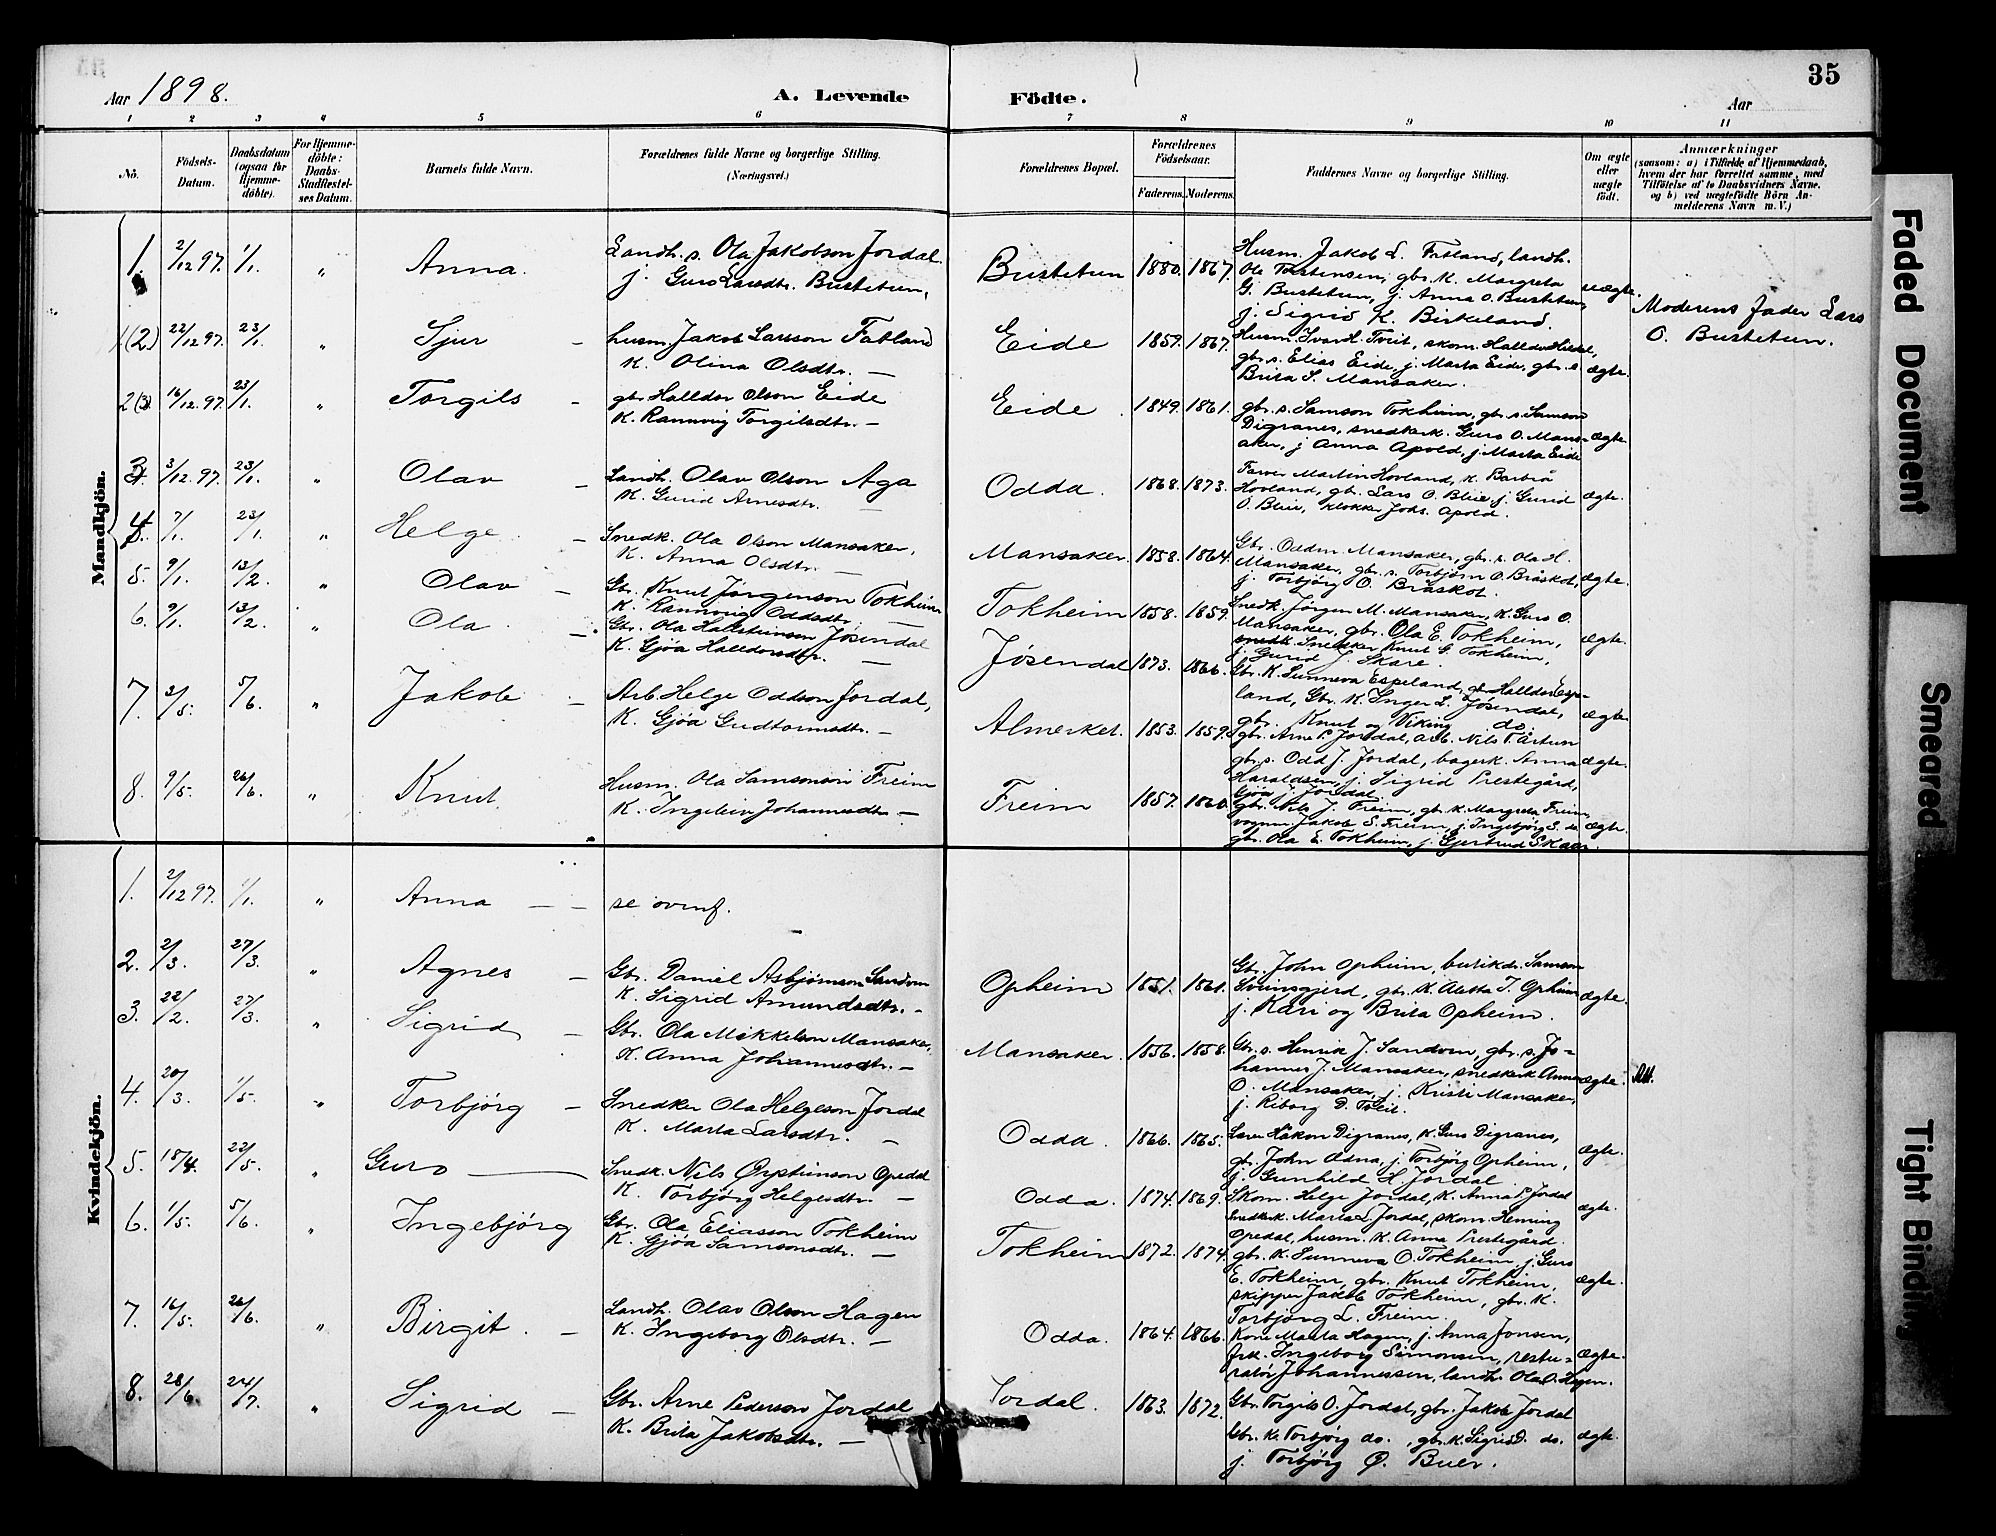 35
Aar 1898.
A. Levende Födte.
Aar
1 2 3 4 5 6 7 8 9 10 11
No.
Födsels-Datum.
Daabsdatum (ogsaa for Hjemme-döbte).
For Hjemme-döbte: Daabs-Stadfæstel-ses Datum.
Barnets fulde Navn.
Forældrenes fulde Navne og borgerlige Stilling. (Næringsvei.)
Forældrenes Bopæl.
Forældrenes Födselsaar.
Faderens. Moderens.
Faddernes Navne og borgerlige Stilling.
Om ægte eller uægte födt.
Anmærkninger
(saasom: a) i Tilfælde af Hjemmedaab, hvem der har forrettet samme, med Tilföielse af to Daabsvidners Navne, og b) ved uægtefödte Börn An-melderens Navn m. V.)
Mandkjön.
1. 2/12 97. 1/1. " Anna.
Landh. s. Ola Jakobson Jordal.
j. Guro Larsdtr. Bustetun,
Bustetun 1880. 1867.
Husm. Jakob L. Fatland, landh.
Ola Torstensen, gbr. K. Margreta
G. Bustetun, j. Anna O. Bustetun,
j. Sigrid K. Birkeland.
uægte.
Moderens Fader Lars
O. Bustetun.
1(2) 22/12 97. 23/1. " Sjur –
husm. Jakob Larsson Fatland
K. Olina Olsdtr. —
Eide 1859. 1867.
Husm. Ivar H. Tveit, skom. Halldor
gbr. s. Elias Eide, j. Marta Eide, gbr. s
Brita S. Mansaker.
ægte.
2(3) 16/12 97. 23/1. " Torgils –
gbr. Halldor Olson Eide
K. Rannveig Torgilsdtr. —
Eide 1849. 1861.
gbr. s. Samson Tokheim, gbr. s. Samson
Digranes, snedkerk. Guro O. Mans-
aker, j Anna Apold, j. Marta Eide
ægte.
3. 3/12 97. 23/1. " Olav –
Landh. Olav Olson Aga
K. Gurid Arnesdtr. —
Odda. 1868. 1873.
Farver Martin Hovland, K. Barbra
Hovland, gbr. Lars O. Bleie, j. Gunid
O. Bleie, klokker Johs. Apold.
ægte.
4. 7/1. 23/1. " Helge –
Snedk. Ola Olson Mansaker,
K. Anna Olsdtr. —
Mansaker. 1858. 1864.
Gbr. Oddm. Mansaker, gbr. s. Ola H.
Mansaker, gbr. s. Torbjörn O. Bråskot,
j. Torbjörg O. Bråskot.
ægte.
5. 9/1. 13/2. " Olav –
Gbr. Knut Jørgenson Tokheim
K. Rannveig Oddsdtr. —
Tokheim 1858. 1859.
Snedk. Jörgen M. Mansaker, K. Guro O.
Mansaker, gbr. Ola E. Tokheim,
snedk. Snedker Knut G. Tokheim,
j. Gurid J. Skare.
ægte.
6. 9/1. 13/2. " Ola –
Gbr. Ola Hallsteinson Jøsendal
K. Gjøa Halldorsdtr. —
Jøsendal 1873. 1866.
Gbr. K. Sunneva Espeland, gbr Halldor Espe-
land, Gbr. K. Inger L. Jøsendal,
gbr. Knut og Viking do.
ægte.
7. 2/5. 5/6. " Jakob –
Arb. Helge Oddson Jordal,
K. Gjøa Gudtormsdtr. —
Almerket. 1853. 1859.
gbr. Arne P. Jordal, Arb. Nils T. Årtun
gbr. s. Odd J. Jordal, bagerk. Anna
Haraldsen, j. Sigrid Prestegård,
Gjøa J. Jordal.
ægte.
8. 9/5. 26/6. " Knut.
Husm. Ola Samsonson Freim
K. Ingeleiv Johannesdtr. —
Freim 1857. 1860.
gbr. Nils J. Freim, gbr. K. Margreta Freim,
vognm. Jakob S. Freim, j. Ingebjörg S. do
gbr. Ola E. Tokheim, j. Gjertrud Skaar.
ægte.
Kvindekjön.
1. 2/12 97. 1/1. " Anna — –
se ovenf.
2. 2/3. 27/3. " Agnes –
Gbr. Daniel Asbjørnson Sandven
K. Sigrid Amundsdtr. –
Opheim 1851. 1861.
Gbr. John Opheim, butikdr. Samson
Sveinsgjerd, gbr. K. Aletta T. Opheim
j. Kari og Brita Opheim.
ægte.
3. 22/2. 27/3. " Sigrid –
Gbr. Ola Mikkelson Mansaker,
K. Anna Johannesdtr. –
Mansaker. 1856. 1858.
Gbr. s. Henrik J. Sandven, gbr. s. Jo-
hannes J. Mansaker, snedkerk Anna
O. Mansaker, j. Kristi Mansaker,
j. Riborg D. Tveit.
ægte.
4. 20/3. 1/5. " Torbjörg –
Snedker Ola Helgeson Jordal
K. Marta Larsdtr. —
Odda. 1866. 1865.
Lærer Håkon Digranes, K. Guro Digranes,
gbr. John Ædna, j. Torbjörg Opheim,
j. Gunhild H. Jordal.
ægte.
5. 18/4. 22/5. " Guro —
Snedk. Nils Øysteinson Opedal
K. Torbjörg Helgesdtr. —
Odda. 1874. 1869.
Skom. Helge Jordal, K. Anna P. Jordal
Snedkerk. Marta L. Jordal, skom. Heming
Opedal, husm. K. Anna Prestegård.
ægte.
6. 1/5. 5/6. " Ingebjörg
Gbr. Ola Eliasson Tokheim
K. Gjøa Samsonsdtr. —
Tokheim 1872. 1874.
gbr. K. Sunneva O. Tokheim, j. Guro
E. Tokheim, gbr. Knut Tokheim,
skipper Jakob Tokheim, gbr. K.
Torbjörg L. Freim.
ægte.
7. 16/5. 26/6. " Birgit. –
Landh. Olav Olson Hagen
K. Ingeborg Olsdtr. —
Odda. 1864. 1866.
Kone Marta Hagen, j. Anna Jonsen,
frk. Ingeborg Simonsen, restu-
ratör Johannessen, landh. Ola O. Hagen.
ægte.
8. 28/6. 24/7. " Sigrid –
Gbr. Arne Pederson Jordal
K. Brita Jakobsdtr. —
Jordal. 1863. 1872.
Gbr. Torgils O. Jordal, gbr. Jakob Jordal
Gbr. K. Torbjörg do., gbr. K. Sigrid D. do.
j. Torbjörg Ø. Buer.
ægte.
Faded Document
Smeared
Tight Binding